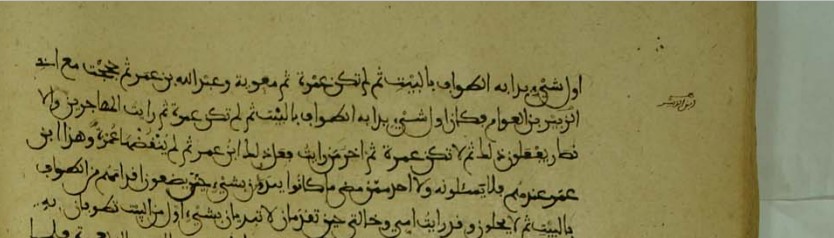 اول شيء بدا به الطواف بالبيت ثم لم تكن عمرة ثم معوية وعبد الله بن عمر ثم حججت مع ابى
الزبير بن العوام فكان اول شيء بدا به الطواف بالبيت ثم لم تكن عمرة ثم رايت المهاجرين والا
نصار يفعلون ذلك ثم لا تكن عمرة ثم اخر من رايت فعل ذلك ابن عمر ثم لم ينقضها عمرة وهذا ابن
عمر عندهم فلا يسئلونه ولا احد ممن مضى ما كانوا يبدءون بشيء حتى يضعون اقدامهم من الطواف
بالبيت ثم لا يحلون وقد رايت امي وخالتي حين تقدمان لا تبديان بشيء اول من البيت تطوفان به